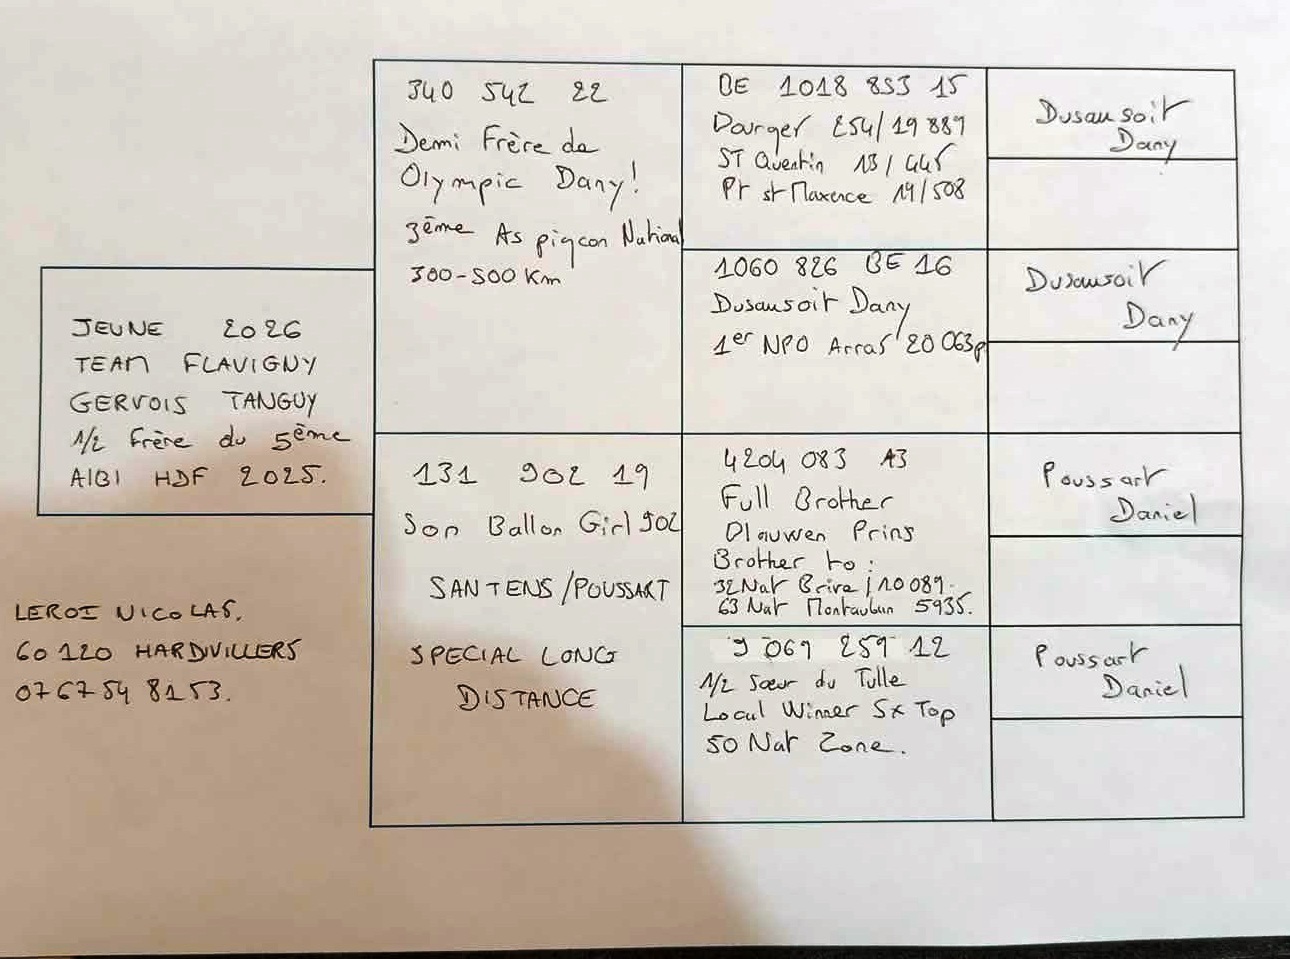 JEUNE 2026
TEAM FLAVIGNY
GERVOIS TANGUY
1/2 Frère du 5ème
AIBI HDF 2025.
LEROI NICOLAS.
60 120 HARDIVILLERS
07 67 54 81 53.
340 542 22
Demi Frère de
Olympic Dany!
3ème As pigeon National
300-500 Km
131 902 19
Son Ballon Girl 902
SANTENS/POUSSART
SPECIAL LONG
DISTANCE
BE 1018 853 15
Dourger 254/19 889
ST Quentin 13/445
Pt st Maxence 19/508
1060 826 BE 16
Dusausoit Dany
1er NPO Arras 20 063p
4204 083 13
Full Brother
Blauwen Prins
Brother to :
32 Nat Brive / 10 089.
63 Nat Montauban 5935.
9 069 259 12
1/2 Sœur du Tulle
Local Winner 5x Top
50 Nat Zone.
Dusausoit
Dany
Dusausoit
Dany
Poussart
Daniel
Poussart
Daniel